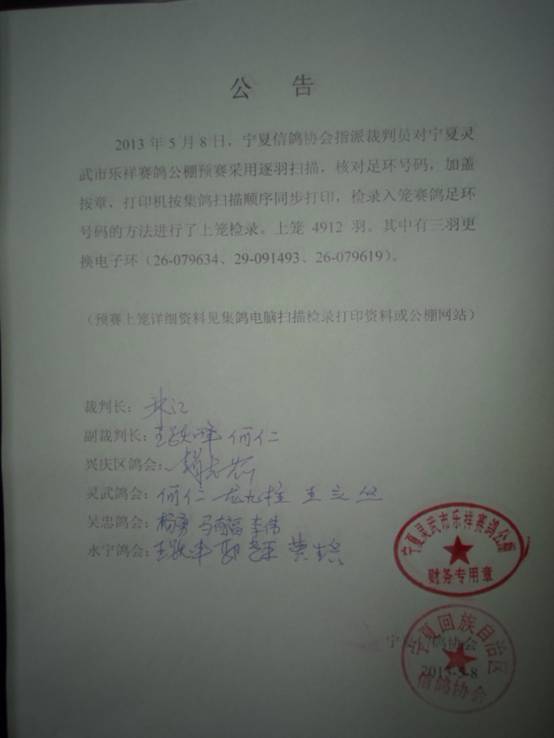 公 告
2013 年 5 月 8 日，宁夏信鸽协会指派裁判员对宁夏灵
武市乐祥赛鸽公棚预赛采用逐羽扫描，核对足环号码，加盖
按章、打印机按集鸽扫描顺序同步打印，检录入笼赛鸽足环
号码的方法进行了上笼检录。上笼 4912 羽。其中有三羽更
换电子环（26-079634、29-091493、26-079619）。
（预赛上笼详细资料见集鸽电脑扫描检录打印资料或公棚网站）
裁判长：
副裁判长： 何仁
兴庆区鸽会：
灵武鸽会：何仁
吴忠鸽会：杨勇 李伟
永宁鸽会：
宁夏灵武市乐祥赛鸽公棚
财务专用章
宁夏信鸽协会
2013-5-8
宁夏回族自治区
信鸽协会